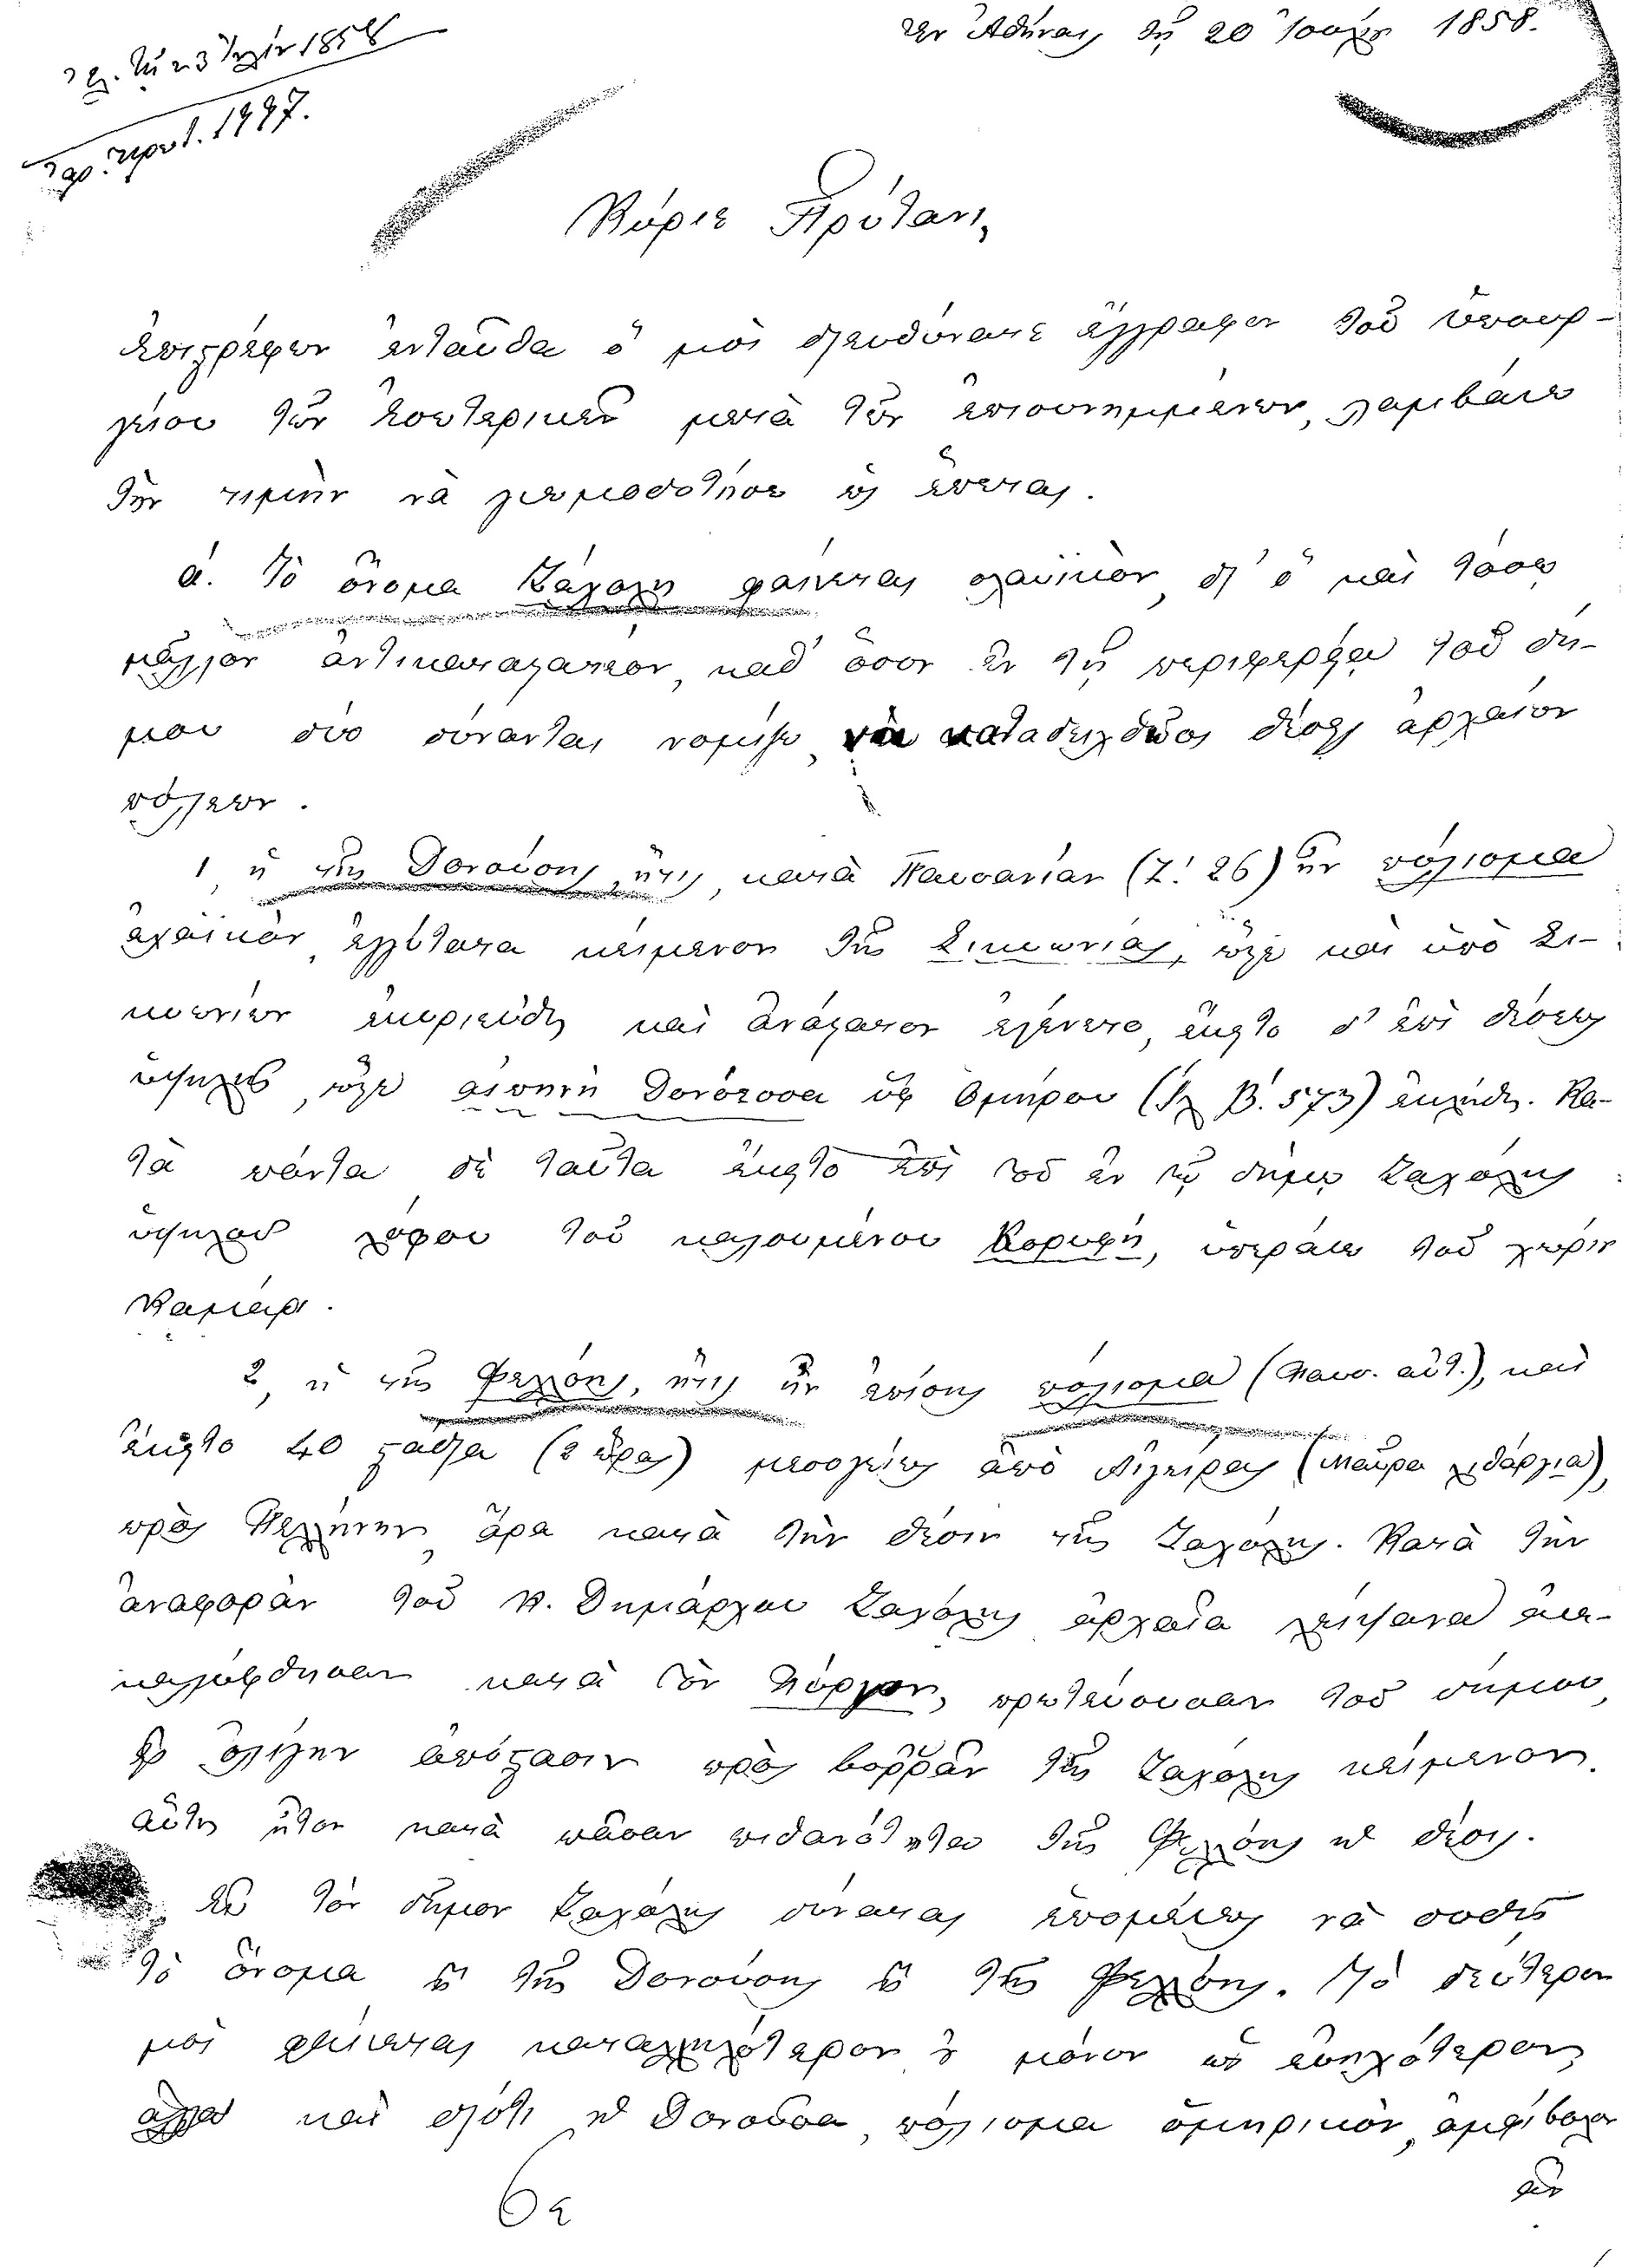 Ἐν Ἀθήναις τῇ 20 Ἰουλίου 1858.
ἐλ. τῇ 23 Ἰουλίου 1858
ἀρ. πρωτ. 1997.
Κύριε Πρύτανι,
Ἐπιστρέφων ἐνταῦθα ὅ μοὶ διευθύνατε ἔγγραφον τοῦ ὑπουρ-
γείου τῶν Ἐσωτερικῶν μετὰ τῶν ἐπισυνημμένων, λαμβάνω
τὴν τιμὴν νὰ γνωμοδοτήσω ὡς ἕπεται.
ά. Τὸ ὄνομα Ζάχολη φαίνεται σλαυϊκὸν, δι' ὃ καὶ τόσῳ
μᾶλλον ἀντικαταστατέον, καθ' ὅσον ἐν τῇ περιφερείᾳ τοῦ δή-
μου δύο δύνανται, νομίζω, νὰ καταδειχθῶσι θέσεις ἀρχαίων
πόλεων.
1, ἡ τῆς Δονούσης, ἥτις, κατὰ Παυσανίαν (Ζ'. 26) ἦν πόλισμα
ἀχαϊκὸν, ἐγγύτατα κείμενον τῆς Σικυωνίας, ὥστε καὶ ὑπὸ Σι-
κυωνίων ἐκυριεύθη καὶ ἀνάστατον ἐγένετο, ἔκειτο δ' ἐπὶ θέσεως
ὑψηλῆς, ὥστε αἰπεινὴ Δονόεσσα ὑφ' Ὁμήρου (Ἰλ. Β'. 573) ἐκλήθη. Κα-
τὰ πάντα δὲ ταῦτα ἔκειτο ἐπὶ τοῦ ἐν τῷ δήμῳ Ζαχόλης
ὑψηλοῦ λόφου τοῦ καλουμένου Κορυφή, ὑπεράνω τοῦ χωρίου
Καμάρι.
2, ἡ τῆς Φελλόης, ἥτις ἦν ἐπίσης πόλισμα (Παυσ. αὐτ.), καὶ
ἔκειτο 40 στάδια (2 ὥρας) μεσογείως ἀπὸ Αἰγείρας (Μαῦρα λιθάρια),
πρὸς Πελλήνην, ἄρα κατὰ τὴν θέσιν τῆς Ζαχόλης. Κατὰ τὴν
ἀναφορὰν τοῦ κ. Δημάρχου Ζαχόλης ἀρχαῖα λείψανα ἀνε-
καλύφθησαν κατὰ τὸν Πύργον, πρωτεύουσαν τοῦ δήμου,
εἰς ὀλίγην ἀπόστασιν πρὸς βοῤῥᾶν τῆς Ζαχόλης κείμενον.
Αὕτη ἦτον κατὰ πᾶσαν πιθανότητα τῆς Φελλόης ἡ θέσις.
Εἰς τὸν δῆμον Ζαχόλης δύναται ἑπομένως νὰ δοθῇ
τὸ ὄνομα ἢ τῆς Δονούσης ἢ τῆς Φελλόης. Τὸ δεύτερον
μοὶ φαίνεται καταλληλότερον οὐ μόνον ὡς εὐηχότερον,
ἀλλὰ καὶ διότι ἡ Δονοῦσα, πόλισμα ὁμηρικὸν, ἀμφίβολον
ἂν